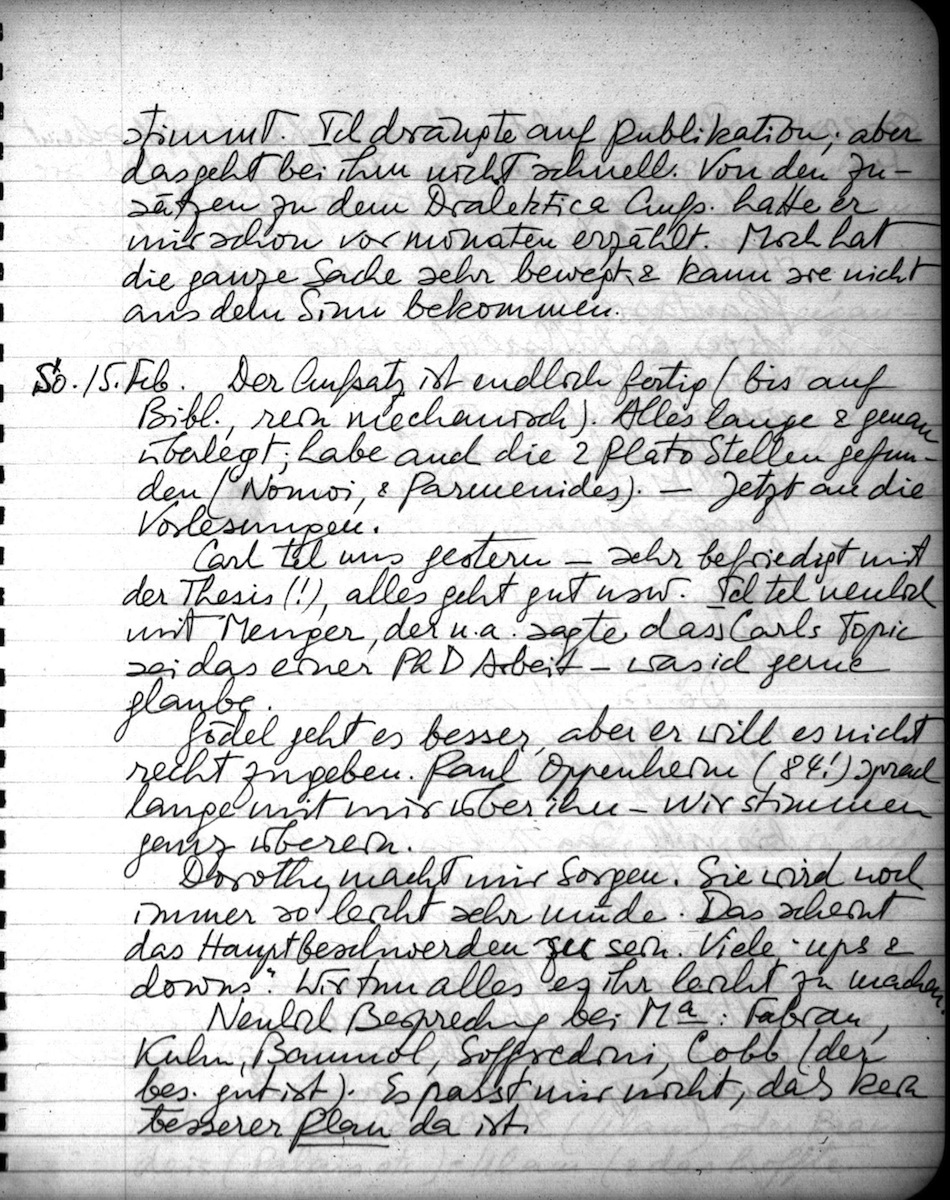 stimmt. Ich drängte auf Publikation; aber
das geht bei ihm nicht schnell. Von den Zu-
sätzen zu dem Dialektica Aufs. hatte er
mir schon vor Monaten erzählt. Mich hat
die ganze Sache sehr bewegt & kann sie nicht
aus dem Sinn bekommen.
So. 15. Feb. Der Aufsatz ist endlich fertig (bis auf
Bibl., rein mechanisch). Alles lange & genau
überlegt; habe auch die 2 Plato Stellen gefun-
den (Nomoi, & Parmenides). — Jetzt an die
Vorlesungen.
Carl tel uns gestern — sehr befriedigt mit
der Thesis (!), alles geht gut usw. Ich tel neulich
mit Menger, der u.a. sagte dass Carls Topic
sei das einer PhD Arbeit — was ich gerne
glaube.
Gödel geht es besser, aber er will es nicht
recht zugeben. Paul Oppenheim (84!) sprach
lange mit mir über ihn — wir stimmen
ganz überein.
Dorothy macht mir Sorgen. Sie wird noch
immer so leicht sehr müde. Das scheint
das Hauptbeschwerden zu sein. Viele "ups &
downs". Wir tun alles es ihr leicht zu machen.
Neulich Besprechung bei Ma: Fabian,
Kuhn, Baumol, Soffredini, Cobb (der
bes. gut ist). Es passt mir nicht, daß kein
besserer Plan da ist.